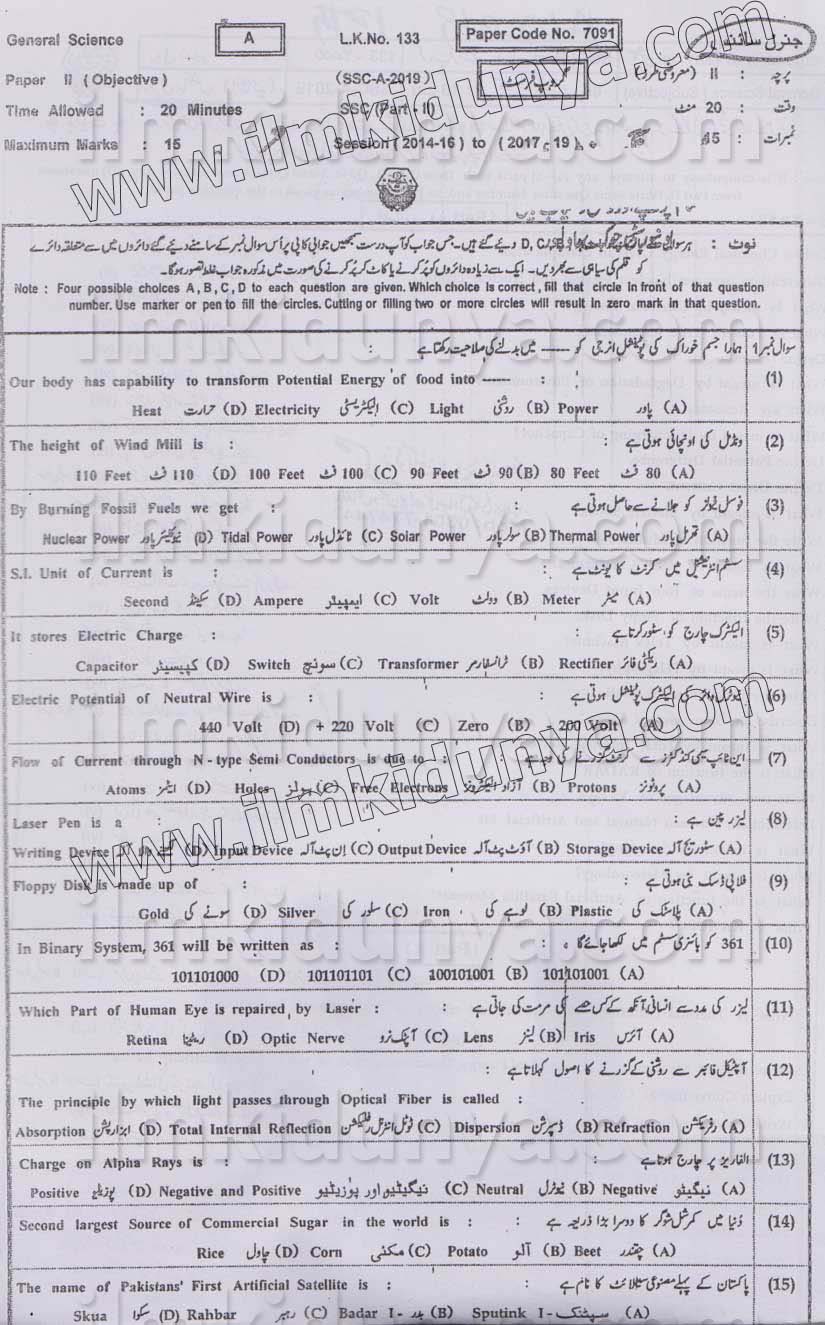 General Science A L.K.No. 133 Paper Code No. 7091 جنرل سائنس
Paper II (Objective) (SSC-A-2019) پرچہ : II (معروضی طرز)
Time Allowed : 20 Minutes SSC (Part - II) وقت : 20 منٹ
Maximum Marks : 15 Session (2014-16) to (2017-19) نمبرات : 15
نوٹ : ہر سوال D, C, B, A دیئے گئے ہیں۔ جس جواب کو آپ درست سمجھیں جوابی کاپی پر اُس سوال نمبر کے سامنے دیئے گئے دائروں میں سے متعلقہ دائرے
کو قلم کی سیاہی سے بھر دیں۔ ایک سے زیادہ دائروں کو پُر کرنے یا کاٹ کر پُر کرنے کی صورت میں مذکورہ جواب غلط تصور ہو گا۔
Note : Four possible choices A, B, C, D to each question are given. Which choice is correct, fill that circle in front of that question
number. Use marker or pen to fill the circles. Cutting or filling two or more circles will result in zero mark in that question.
سوال نمبر 1 ہمارا جسم خوراک کی پوٹینشل انرجی کو ------ میں بدلنے کی صلاحیت رکھتا ہے :
Our body has capability to transform Potential Energy of food into ------ : (1)
Heat حرارت (D) Electricity الیکٹریسٹی (C) Light روشنی (B) Power پاور (A)
The height of Wind Mill is : ونڈمل کی اونچائی ہوتی ہے (2)
110 Feet فٹ 110 (D) 100 Feet فٹ 100 (C) 90 Feet فٹ 90 (B) 80 Feet فٹ 80 (A)
By Burning Fossil Fuels we get : فوسل فیولز کو جلانے سے حاصل ہوتی ہے (3)
Nuclear Power نیوکلیئر پاور (D) Tidal Power ٹائڈل پاور (C) Solar Power سولر پاور (B) Thermal Power تھرمل پاور (A)
S.I. Unit of Current is : سسٹم انٹرنیشنل میں کرنٹ کا یونٹ ہے (4)
Second سیکنڈ (D) Ampere ایمپیئر (C) Volt وولٹ (B) Meter میٹر (A)
It stores Electric Charge : الیکٹرک چارج کو سٹور کرتا ہے (5)
Capacitor کپیسیٹر (D) Switch سوئچ (C) Transformer ٹرانسفارمر (B) Rectifier ریکٹی فائر (A)
Electric Potential of Neutral Wire is : نیوٹرل وائر کی الیکٹرک پوٹینشل ہوتی ہے (6)
440 Volt (D) + 220 Volt (C) Zero (B) - 200 Volt (A)
Flow of Current through N - type Semi Conductors is due to : این ٹائپ سیمی کنڈکٹرز سے کرنٹ گزرنے کی وجہ ہے (7)
Atoms ایٹمز (D) Holes ہولز (C) Free Electrons آزاد الیکٹرونز (B) Protons پروٹونز (A)
Laser Pen is a : لیزر پین ہے : (8)
Writing Device لکھنے والا آلہ (D) Input Device اِن پٹ آلہ (C) Output Device آؤٹ پٹ آلہ (B) Storage Device سٹوریج آلہ (A)
Floppy Disk is made up of : فلاپی ڈسک بنی ہوتی ہے : (9)
Gold سونے کی (D) Silver سلور کی (C) Iron لوہے کی (B) Plastic پلاسٹک کی (A)
In Binary System, 361 will be written as : 361 کو بائنری سسٹم میں لکھا جائے گا (10)
101101000 (D) 101101101 (C) 100101001 (B) 101101001 (A)
Which Part of Human Eye is repaired by Laser : لیزر کی مدد سے انسانی آنکھ کے کس حصے کی مرمت کی جاتی ہے (11)
Retina ریٹینا (D) Optic Nerve آپٹک نرو (C) Lens لینز (B) Iris آئرس (A)
آپٹیکل فائبر سے روشنی کے گزرنے کا اصول کہلاتا ہے : (12)
The principle by which light passes through Optical Fiber is called :
Absorption ابزارپشن (D) Total Internal Reflection ٹوٹل انٹرنل رفلیکشن (C) Dispersion ڈسپرشن (B) Refraction رفریکشن (A)
Charge on Alpha Rays is : الفا ریز پر چارج ہوتا ہے : (13)
Positive پوزیٹو (D) Negative and Positive نیگیٹیو اور پوزیٹیو (C) Neutral نیوٹرل (B) Negative نیگیٹو (A)
Second largest Source of Commercial Sugar in the world is : دُنیا میں کمرشل شوگر کا دوسرا بڑا ذریعہ ہے : (14)
Rice چاول (D) Corn مکئی (C) Potato آلو (B) Beet چقندر (A)
The name of Pakistans' First Artificial Satellite is : پاکستان کے پہلے مصنوعی سٹلائٹ کا نام ہے : (15)
Skua سکوا (D) Rahbar رہبر (C) Badar I - بدر (B) Sputink I - سپٹنک (A)
www.ilmkidunya.com
www.ilmkidunya.com
ilmkidunya.com